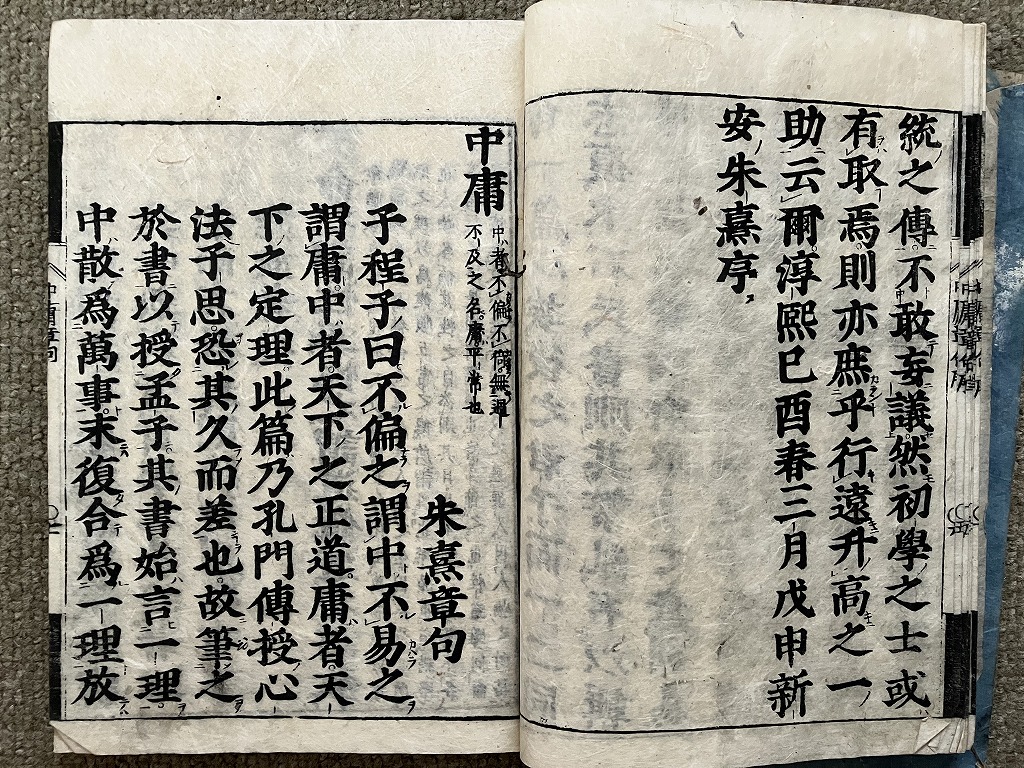 統之傳不敢妄議然初學之士或
有取焉則亦庶乎行遠升高之一
助云爾淳熙巳酉春三月戊申新
安朱熹序
中庸
中者不偏不倚無過
不及之名庸平常也
朱熹章句
子程子曰不偏之謂中不易之
謂庸中者天下之正道庸者天
下之定理此篇乃孔門傳授心
法子思恐其久而差也故筆之
於書以授孟子其書始言一理
中散爲萬事末復合爲一理放